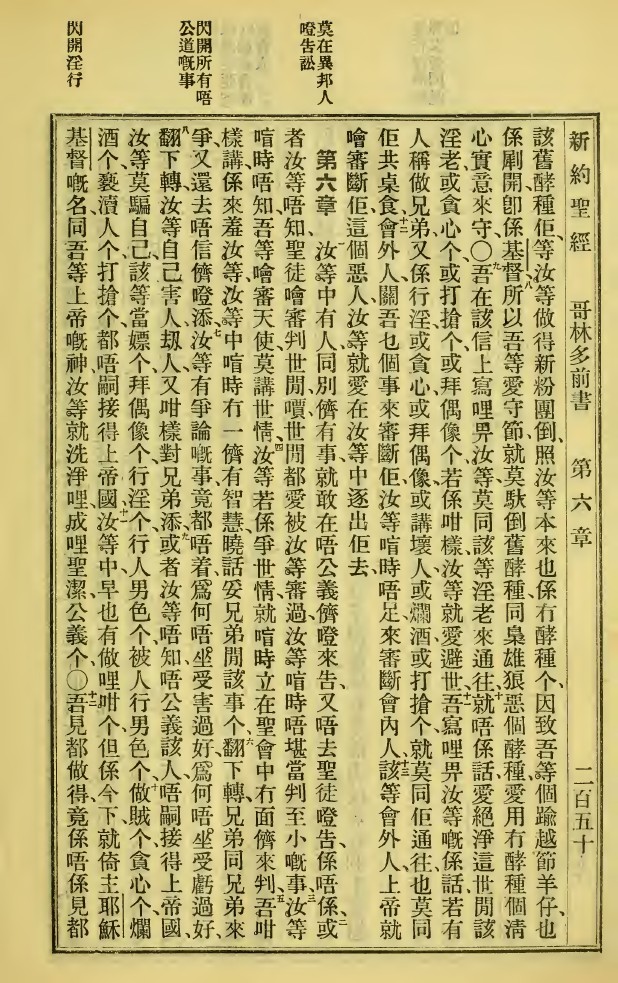 新約聖經　哥林多前書　第六章　二百五十
莫在異邦人
噔告訟
閃開所有唔
公道嘅事
閃開淫行
該舊酵種佢等、汝等做得新粉團倒、照汝等本來也係冇酵種个、因致吾等個踰越節羊仔、也
係刷開卽係基督、八所以吾等愛守節、就莫馱倒舊酵種、同梟雄狼惡個酵種、愛用冇酵種個淸
心實意來守、〇九吾在該信上寫哩畀汝等、莫同該等淫老來通往、十就唔係話愛絕淨這世間該
淫老、或貪心个、或打搶个、或拜偶像个、若係咁樣、汝等就愛避世、十一吾寫哩畀汝等嘅係話、若有
人稱做兄弟、又係行淫、或貪心、或拜偶像、或講壞人、或爛酒、或打搶个、就莫同佢通往、也莫同
佢共桌食、十二會外人、關吾乜個事、來審斷佢、汝等喑時唔足來審斷會內人、十三該等會外人、上帝就
噲審斷佢、這個惡人、汝等就愛在汝等中逐出佢去、
第六章　一汝等中有人同別儕有事、就敢在唔公義儕噔來告、又唔去聖徒噔告、係唔係、二或
者汝等唔知聖徒噲審判世間、嘪世間都愛被汝等審過、汝等喑時唔堪當判至小嘅事、三汝等
喑時唔知、吾等噲審天使、莫講世情、四汝等若係爭世情、就喑時立在聖會中冇面儕來判、五吾咁
樣講、係來羞汝等、汝等中喑時冇一儕有智慧、曉話妥兄弟間該事个、六翻下轉、兄弟同兄弟來
爭、又還去唔信儕噔添、七汝等有爭論嘅事、竟都唔着、爲何唔坐受害過好、爲何唔坐受虧過好、
八翻下轉、汝等自己害人刼人、又咁樣對兄弟添、九或者汝等唔知、唔公義該人、唔嗣接得上帝國、
汝等莫騙自己、該等當嫖个、拜偶像个、行淫个、行人男色个、被人行男色个、十做賊个、貪心个、爛
酒个、褻瀆人个、打搶个、都唔嗣接得上帝國、十一汝等中早也有做哩咁个、但係今下就倚主耶穌
基督嘅名、同吾等上帝嘅神、汝等就洗淨哩、成哩聖潔公義个、〇十二吾見都做得、竟係唔係見都